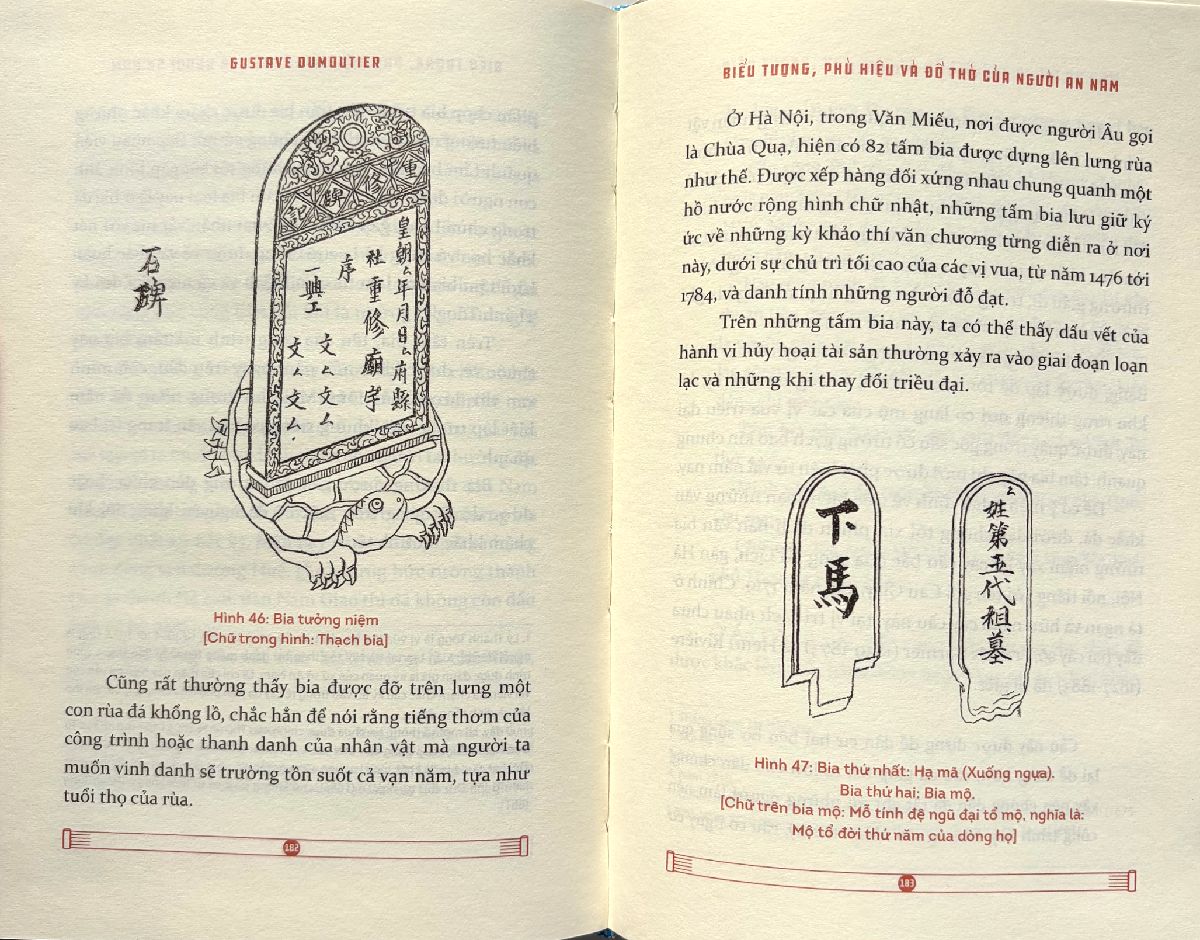 GUSTAVE DUMOUTIER
石碑
重修碑記
皇朝厶年月日厶府縣
社重修廟宇
序
一興工
文厶文厶
文厶文厶
Hình 46: Bia tưởng niệm
[Chữ trong hình: Thạch bia]
Cũng rất thường thấy bia được đỡ trên lưng một
con rùa đá khổng lồ, chắc hẳn để nói rằng tiếng thơm của
công trình hoặc thanh danh của nhân vật mà người ta
muốn vinh danh sẽ trường tồn suốt cả vạn năm, tựa như
tuổi thọ của rùa.
182
BIỂU TƯỢNG, PHÙ HIỆU VÀ ĐỒ THỜ CỦA NGƯỜI AN NAM
Ở Hà Nội, trong Văn Miếu, nơi được người Âu gọi
là Chùa Quạ, hiện có 82 tấm bia được dựng lên lưng rùa
như thế. Được xếp hàng đối xứng nhau chung quanh một
hồ nước rộng hình chữ nhật, những tấm bia lưu giữ ký
ức về những kỳ khảo thí văn chương từng diễn ra ở nơi
này, dưới sự chủ trì tối cao của các vị vua, từ năm 1476 tới
1784, và danh tính những người đỗ đạt.
Trên những tấm bia này, ta có thể thấy dấu vết của
hành vi hủy hoại tài sản thường xảy ra vào giai đoạn loạn
lạc và những khi thay đổi triều đại.
下馬
厶姓第五代祖墓
Hình 47: Bia thứ nhất: Hạ mã (Xuống ngựa).
Bia thứ hai; Bia mộ.
[Chữ trên bia mộ: Mỗ tính đệ ngũ đại tổ mộ, nghĩa là:
Mộ tổ đời thứ năm của dòng họ]
183